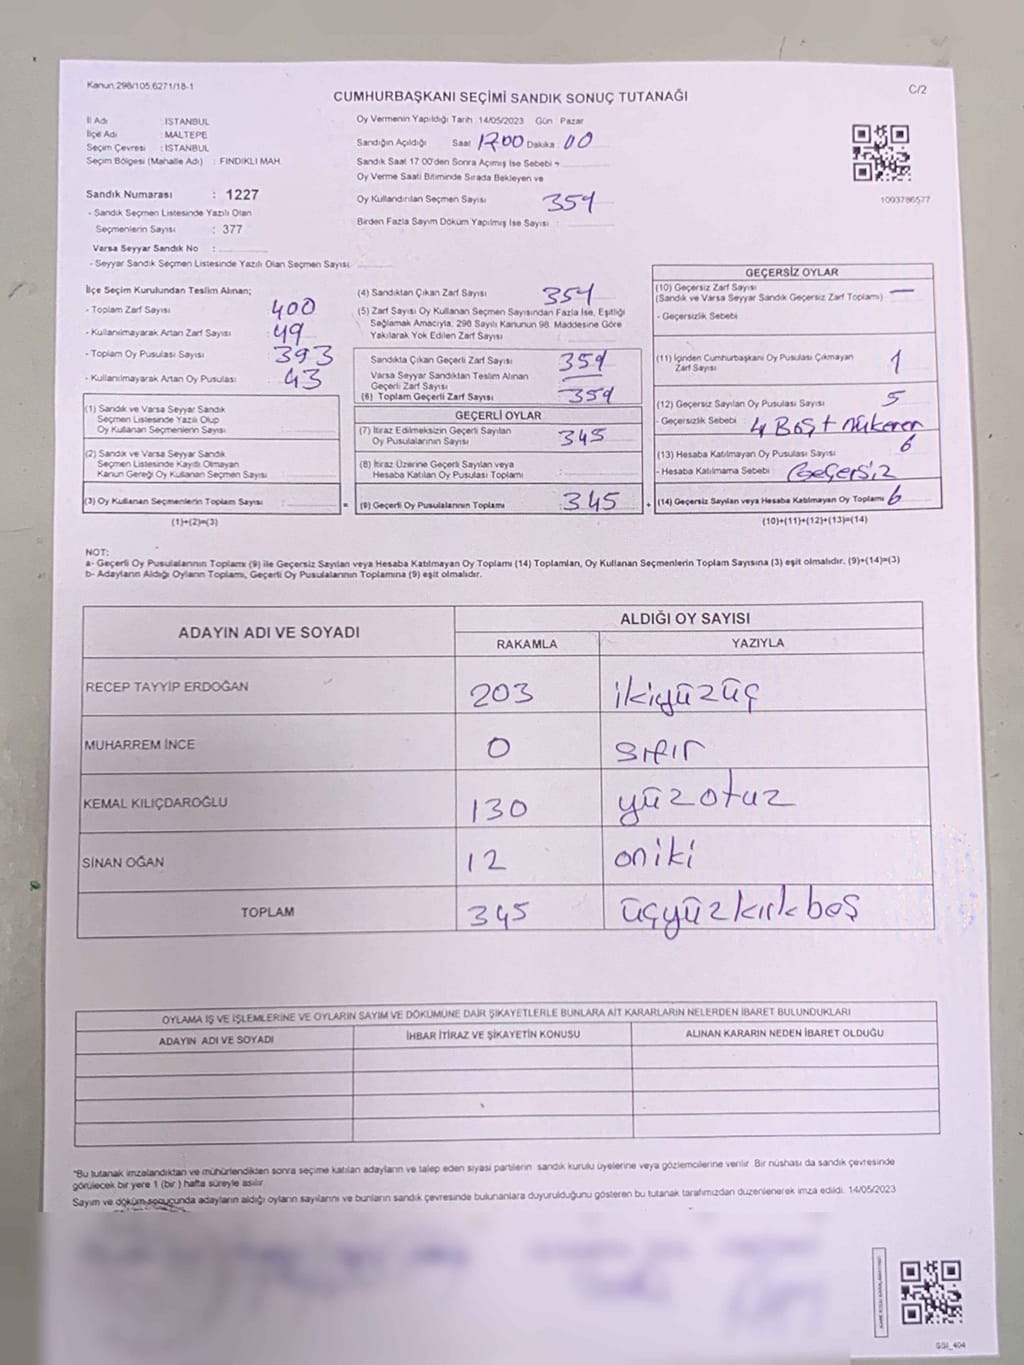 Kanun:298/105.6271/18-1
CUMHURBAŞKANI SEÇİMİ SANDIK SONUÇ TUTANAĞI
C/2
İl Adı : ISTANBUL
İlçe Adı : MALTEPE
Seçim Çevresi : İSTANBUL
Seçim Bölgesi (Mahalle Adı) : FINDIKLI MAH.
Sandık Numarası : 1227
- Sandık Seçmen Listesinde Yazılı Olan
Seçmenlerin Sayısı : 377
Varsa Seyyar Sandık No :
- Seyyar Sandık Seçmen Listesinde Yazılı Olan Seçmen Sayısı
Oy Vermenin Yapıldığı Tarih :14/05/2023 Gün : Pazar
Sandığın Açıldığı Saat 17.00 Dakika : 00
Sandık Saat 17 00'den Sonra Açımış İse Sebebi
Oy Verme Saati Bitiminde Sırada Bekleyen ve
Oy Kullandırılan Seçmen Sayısı 351
Birden Fazla Sayım Döküm Yapılmış İse Sayısı :
1003786577
İlçe Seçim Kurulundan Teslim Alınan;
- Toplam Zarf Sayısı 400
- Kullanılmayarak Artan Zarf Sayısı : 49
- Toplam Oy Pusulası Sayısı : 393
- Kullanılmayarak Artan Oy Pusulası : 43
(1) Sandık ve Varsa Seyyar Sandık
Seçmen Listesinde Yazılı Olup
Oy Kullanan Seçmenlerin Sayısı
(2) Sandık ve Varsa Seyyar Sandık
Seçmen Listesinde Kayıtlı Olmayan
Kanun Gereği Oy Kullanan Seçmen Sayısı
(3) Oy Kullanan Seçmenlerin Toplam Sayısı =
(1)+(2)=(3)
(4) Sandıktan Çıkan Zarf Sayısı 351
(5) Zarf Sayısı Oy Kullanan Seçmen Sayısından Fazla İse, Eşitliği
Sağlamak Amacıyla, 298 Sayılı Kanunun 98. Maddesine Göre
Yakılarak Yok Edilen Zarf Sayısı
Sandıkta Çıkan Geçerli Zarf Sayısı 351
Varsa Seyyar Sandıktan Teslim Alınan
Geçerli Zarf Sayısı
(6) Toplam Geçerli Zarf Sayısı 351
GEÇERLİ OYLAR
(7) İtiraz Edilmeksizin Geçerli Sayılan
Oy Pusulalarının Sayısı 345
(8) İtiraz Üzerine Geçerli Sayılan veya
Hesaba Katılan Oy Pusulası Toplamı
(9) Geçerli Oy Pusulalarının Toplamı 345 +
GEÇERSİZ OYLAR
(10) Geçersiz Zarf Sayısı —
(Sandık ve Varsa Seyyar Sandık Geçersiz Zarf Toplamı)
- Geçersizlik Sebebi
(11) İçinden Cumhurbaşkanı Oy Pusulası Çıkmayan
Zarf Sayısı 1
(12) Geçersiz Sayılan Oy Pusulası Sayısı 5
- Geçersizlik Sebebi 4 Boş + mükerrer
(13) Hesaba Katılmayan Oy Pusulası Sayısı 6
- Hesaba Katılmama Sebebi Geçersiz
(14) Geçersiz Sayılan veya Hesaba Katılmayan Oy Toplamı 6
(10)+(11)+(12)+(13)=(14)
NOT:
a- Geçerli Oy Pusulalarının Toplamı (9) ile Geçersiz Sayılan veya Hesaba Katılmayan Oy Toplamı (14) Toplamları, Oy Kullanan Seçmenlerin Toplam Sayısına (3) eşit olmalıdır. (9)+(14)=(3)
b- Adayların Aldığı Oyların Toplamı, Geçerli Oy Pusulalarının Toplamına (9) eşit olmalıdır.
ADAYIN ADI VE SOYADI
ALDIĞI OY SAYISI
RAKAMLA YAZIYLA
RECEP TAYYİP ERDOĞAN 203 ikiyüzüç
MUHARREM İNCE 0 sıfır
KEMAL KILIÇDAROĞLU 130 yüzotuz
SİNAN OĞAN 12 oniki
TOPLAM 345 üçyüzkırkbeş
OYLAMA İŞ VE İŞLEMLERİNE VE OYLARIN SAYIM VE DÖKÜMÜNE DAİR ŞİKAYETLERLE BUNLARA AİT KARARLARIN NELERDEN İBARET BULUNDUKLARI
ADAYIN ADI VE SOYADI İHBAR İTİRAZ VE ŞİKAYETİN KONUSU ALINAN KARARIN NEDEN İBARET OLDUĞU
*Bu tutanak imzalandıktan ve mühürlendikten sonra seçime katılan adayların ve talep eden siyasi partilerin sandık kurulu üyelerine veya gözlemcilerine verilir. Bir nüshası da sandık çevresinde
görülecek bir yere 1 (bir ) hafta süreyle asılır.
Sayım ve döküm sonucunda adayların aldığı oyların sayılarını ve bunların sandık çevresinde bulunanlara duyurulduğunu gösteren bu tutanak tarafımızdan düzenlenerek imza edildi. 14/05/2023